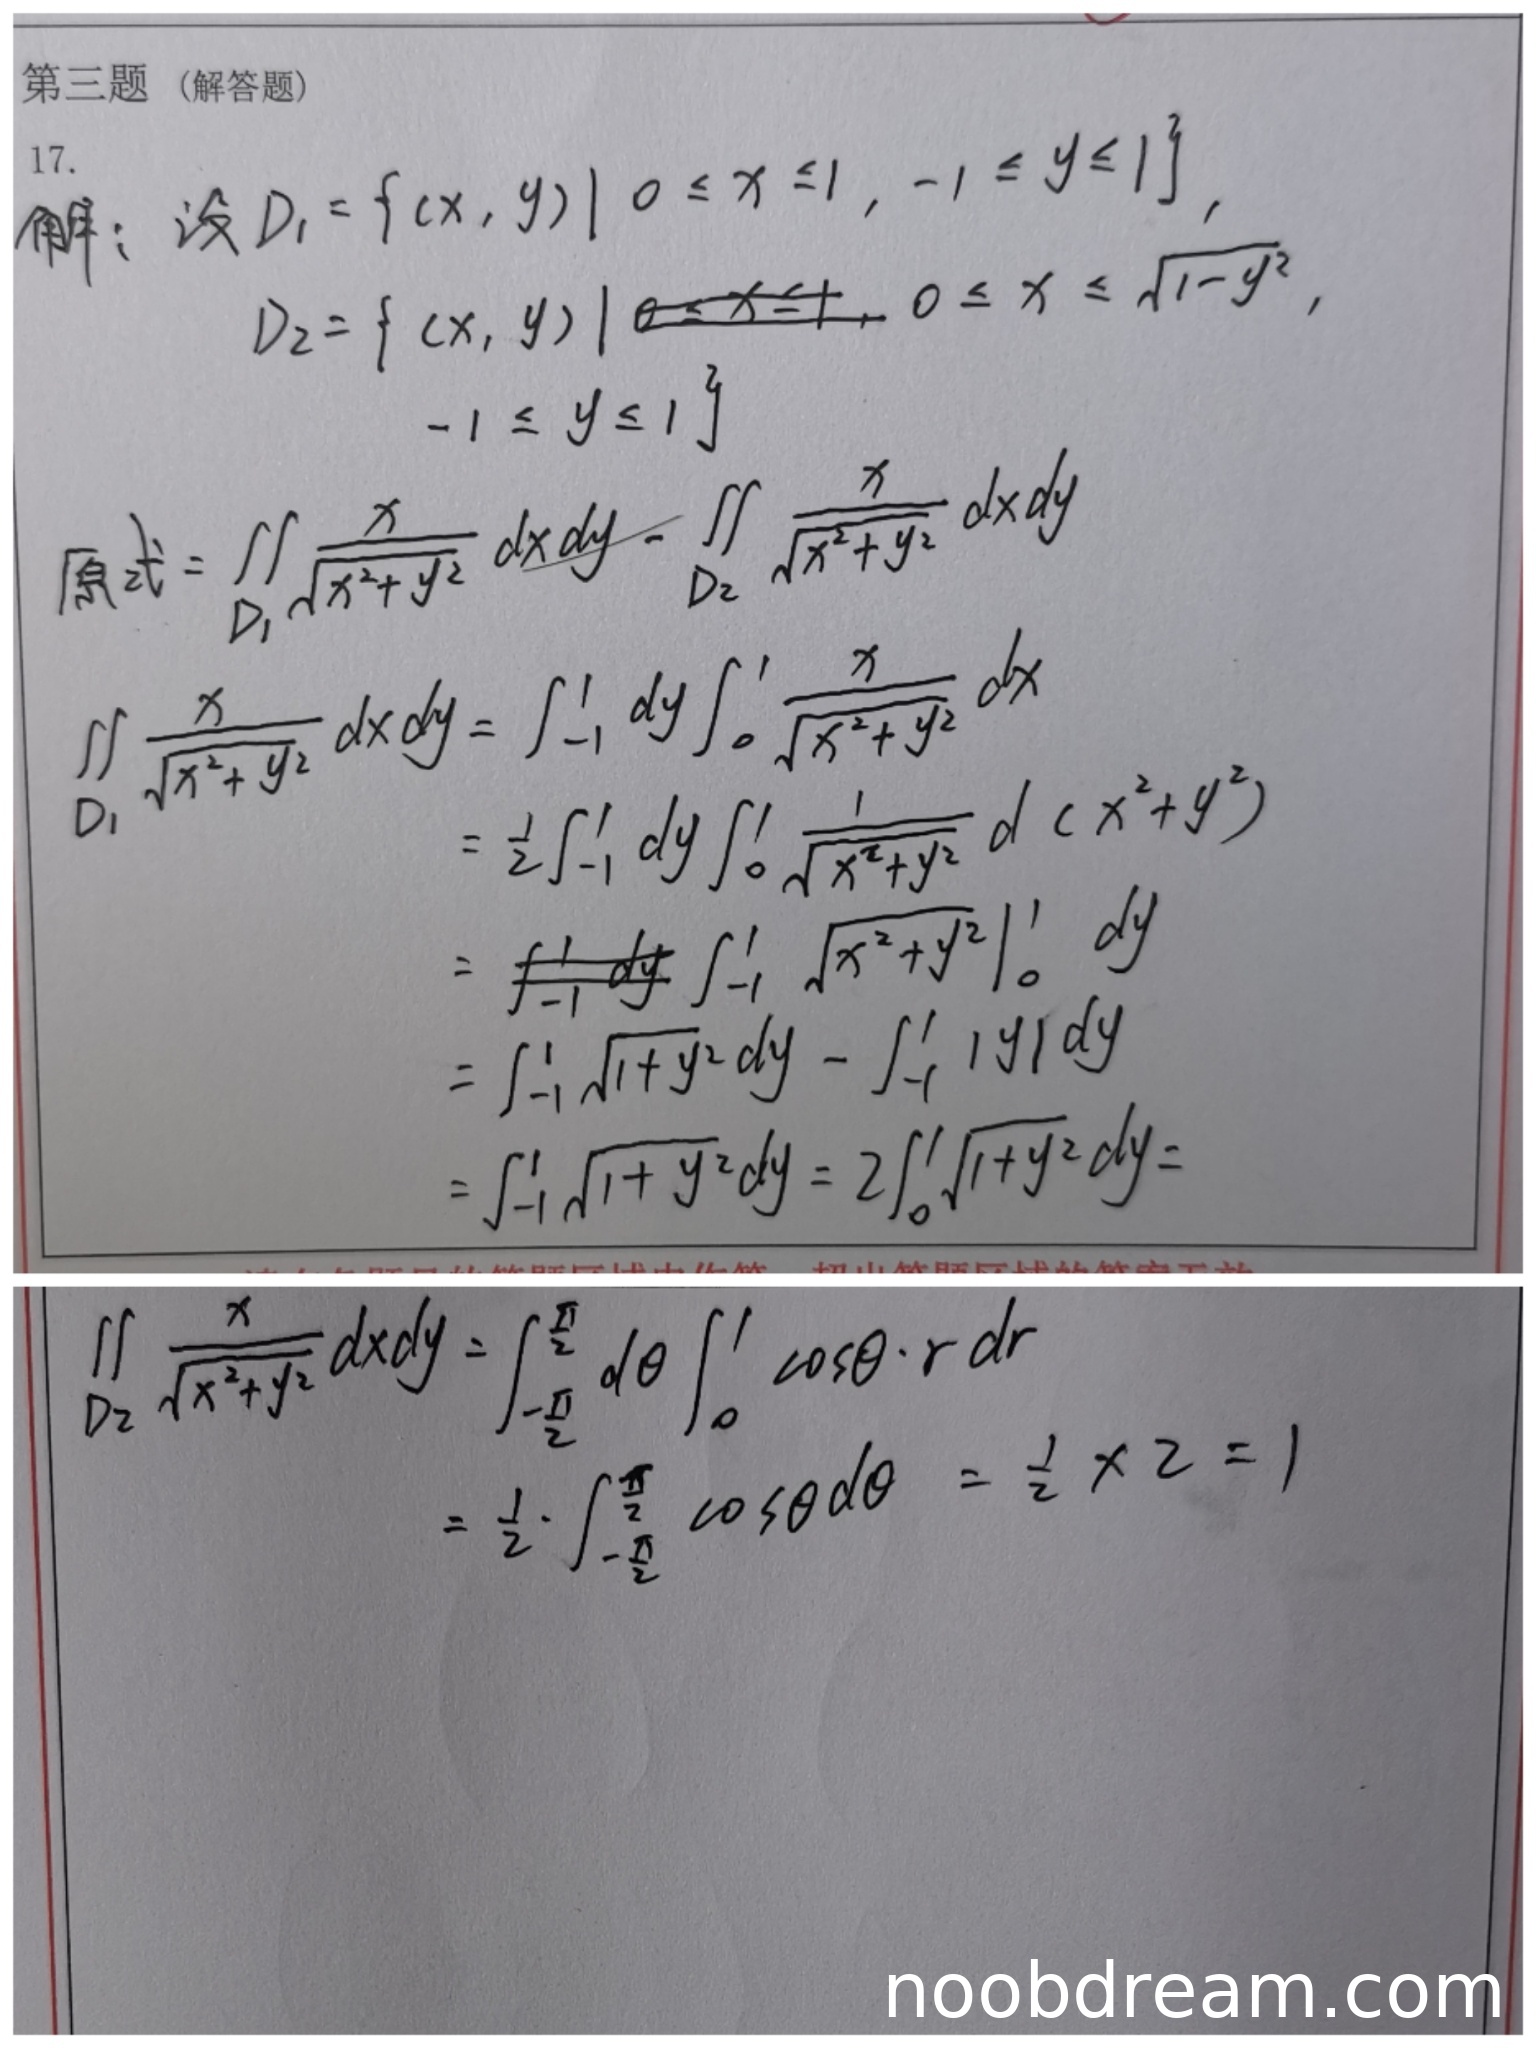 第三题 (解答题)
17.
解: 设 D₁ = {(x, y) | 0 ≤ x ≤ 1, -1 ≤ y ≤ 1},
D₂ = {(x, y) | 0 ≤ x ≤ 1, 0 ≤ x ≤ √(1-y²),
-1 ≤ y ≤ 1}
原式 = ∬_D₁ x/√(x²+y²) dxdy - ∬_D₂ x/√(x²+y²) dxdy
∬_D₁ x/√(x²+y²) dxdy = ∫_{-1}^{1} dy ∫_0^1 x/√(x²+y²) dx
= 1/2 ∫_{-1}^{1} dy ∫_0^1 1/√(x²+y²) d(x²+y²)
= ∫_{-1}^{1} dy ∫_{-1}^{1} √(x²+y²) |_0^1 dy
= ∫_{-1}^{1} √(1+y²) dy - ∫_{-1}^{1} |y| dy
= ∫_{-1}^{1} √(1+y²) dy = 2∫_0^1 √(1+y²) dy =
∬_D₂ x/√(x²+y²) dxdy = ∫_{-π/2}^{π/2} dθ ∫_0^1 cosθ · r dr
= 1/2 · ∫_{-π/2}^{π/2} cosθ dθ = 1/2 × 2 = 1
noobdream.com